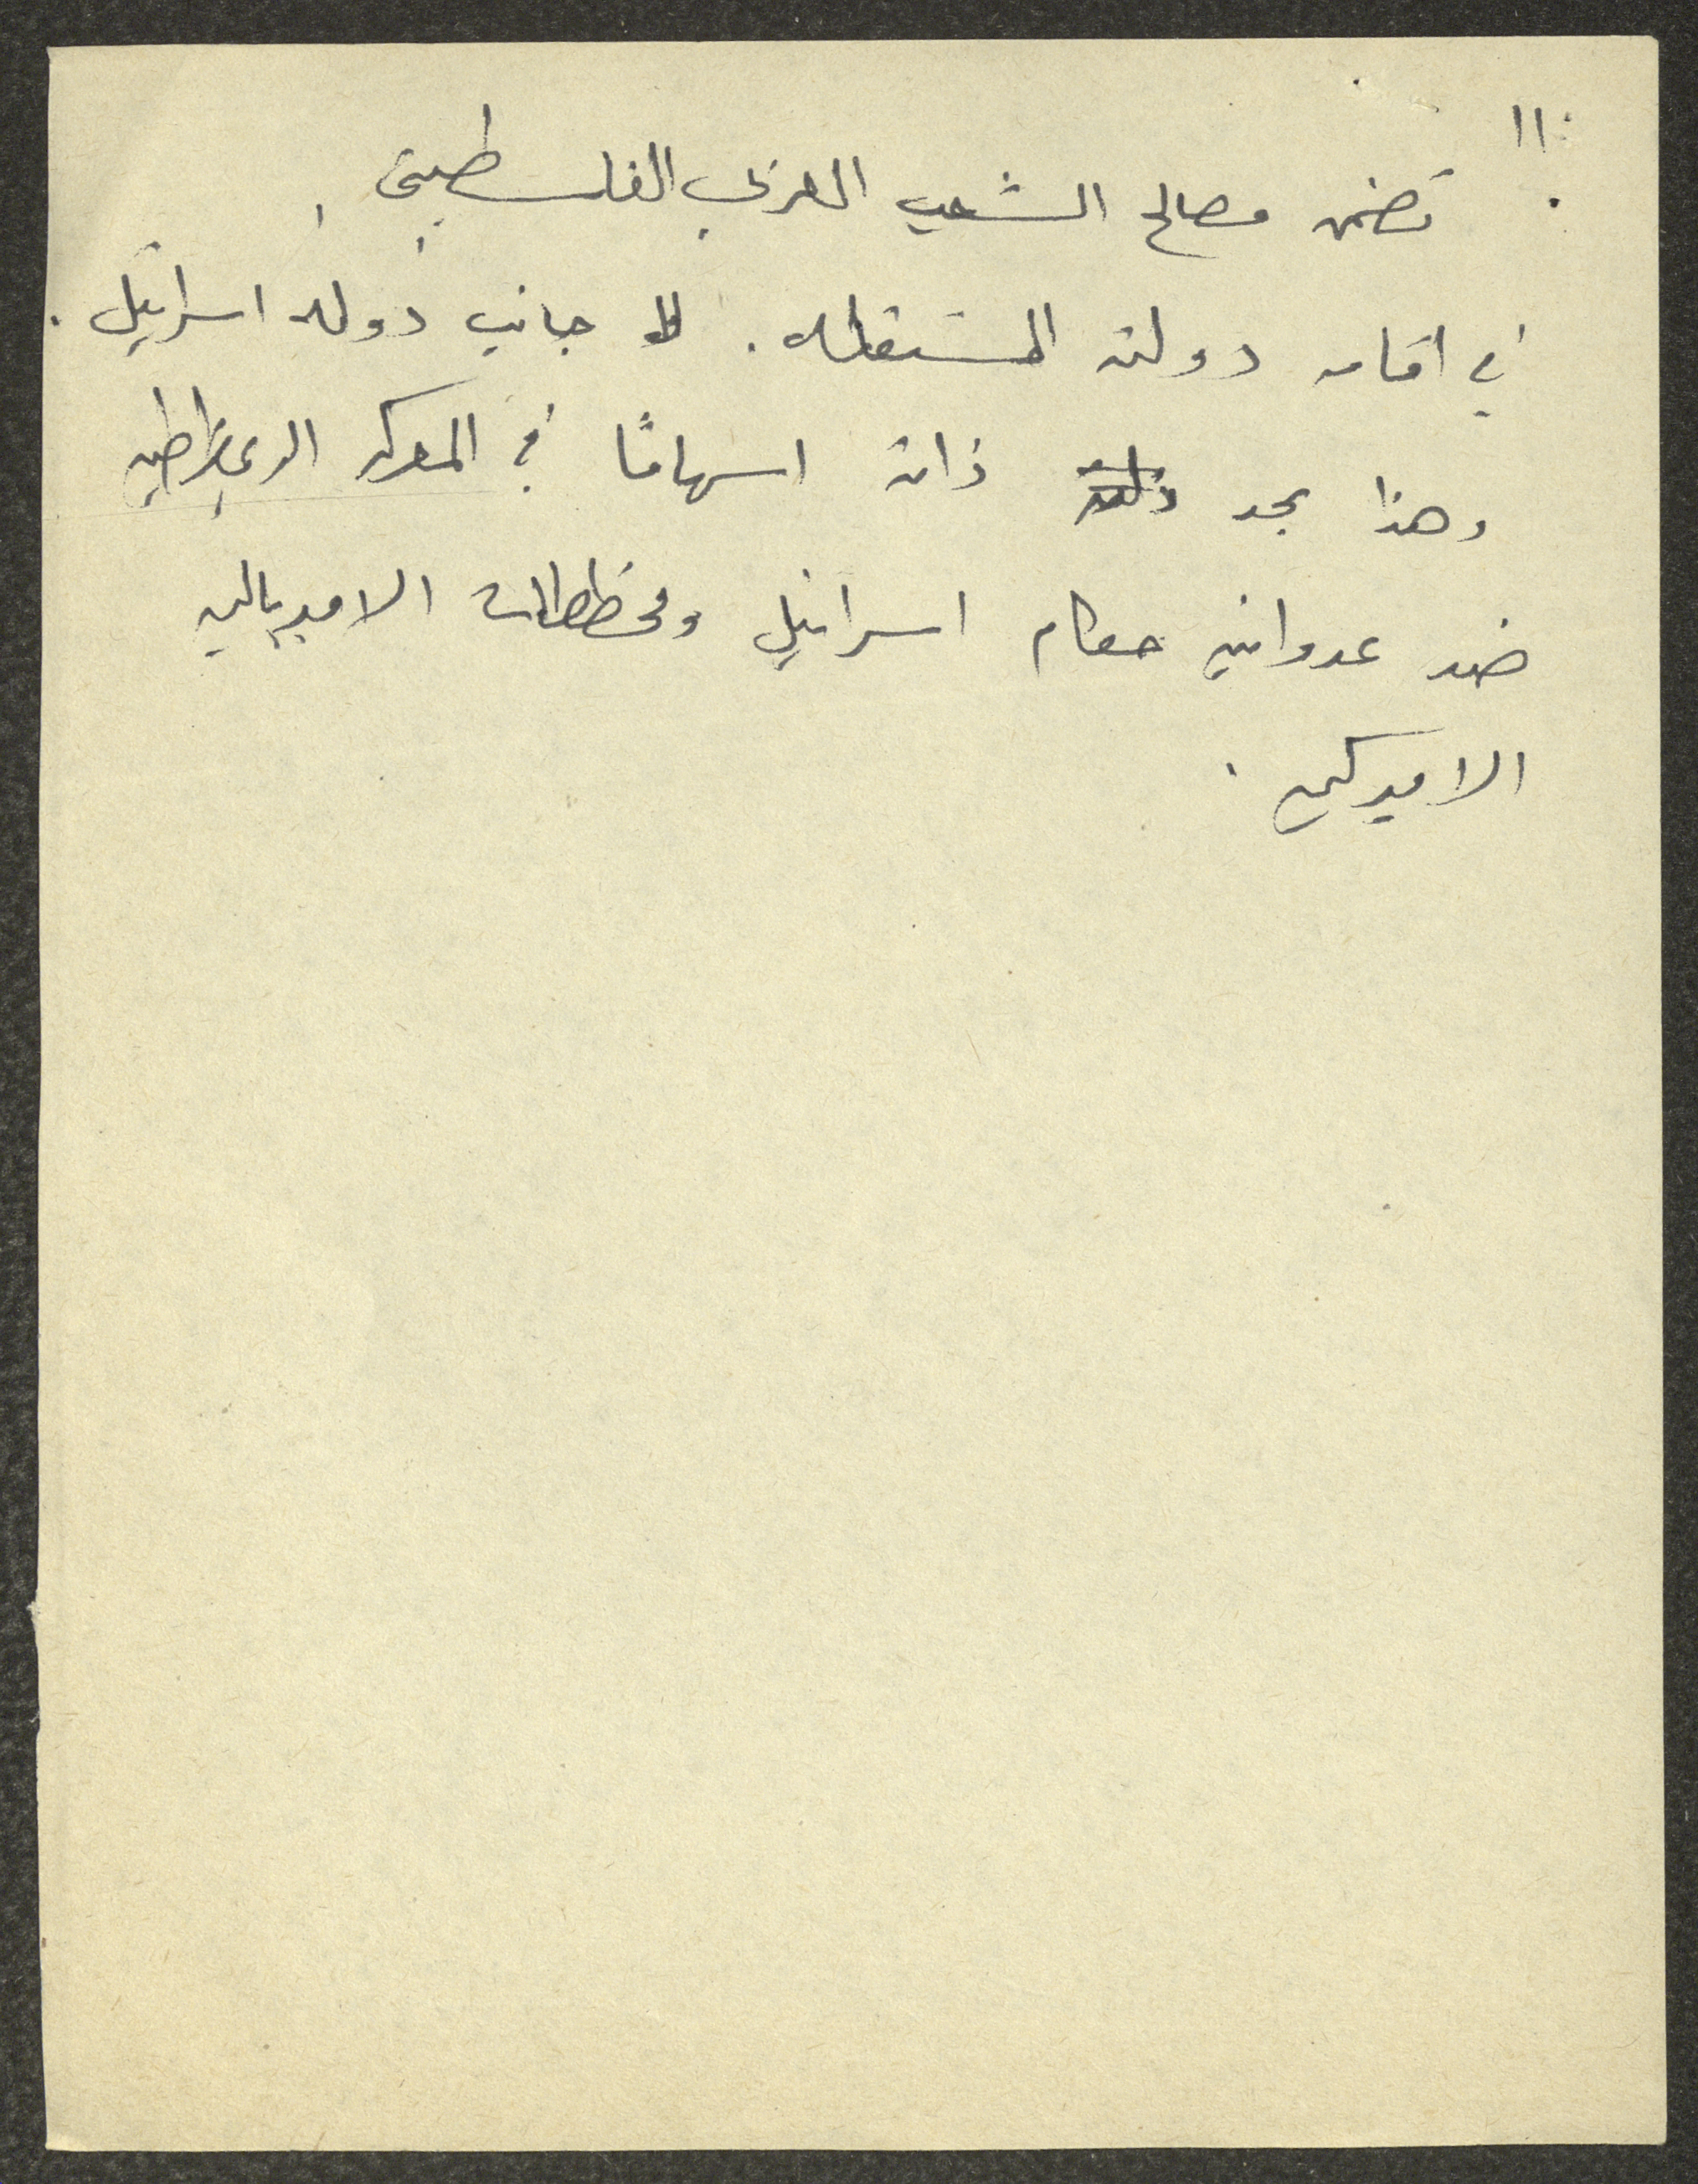 ١١
تضمن مصالح الشعب العربي الفلسطيني
في اقامه دولته المستقله . الى جانب دوله اسرائيل .
وهذا بحد ذاته اسهامًا في المعركه الديمقراطيه
ضد عدوانيه حكام اسرائيل ومخططات الامبرياليه
الاميركيه .